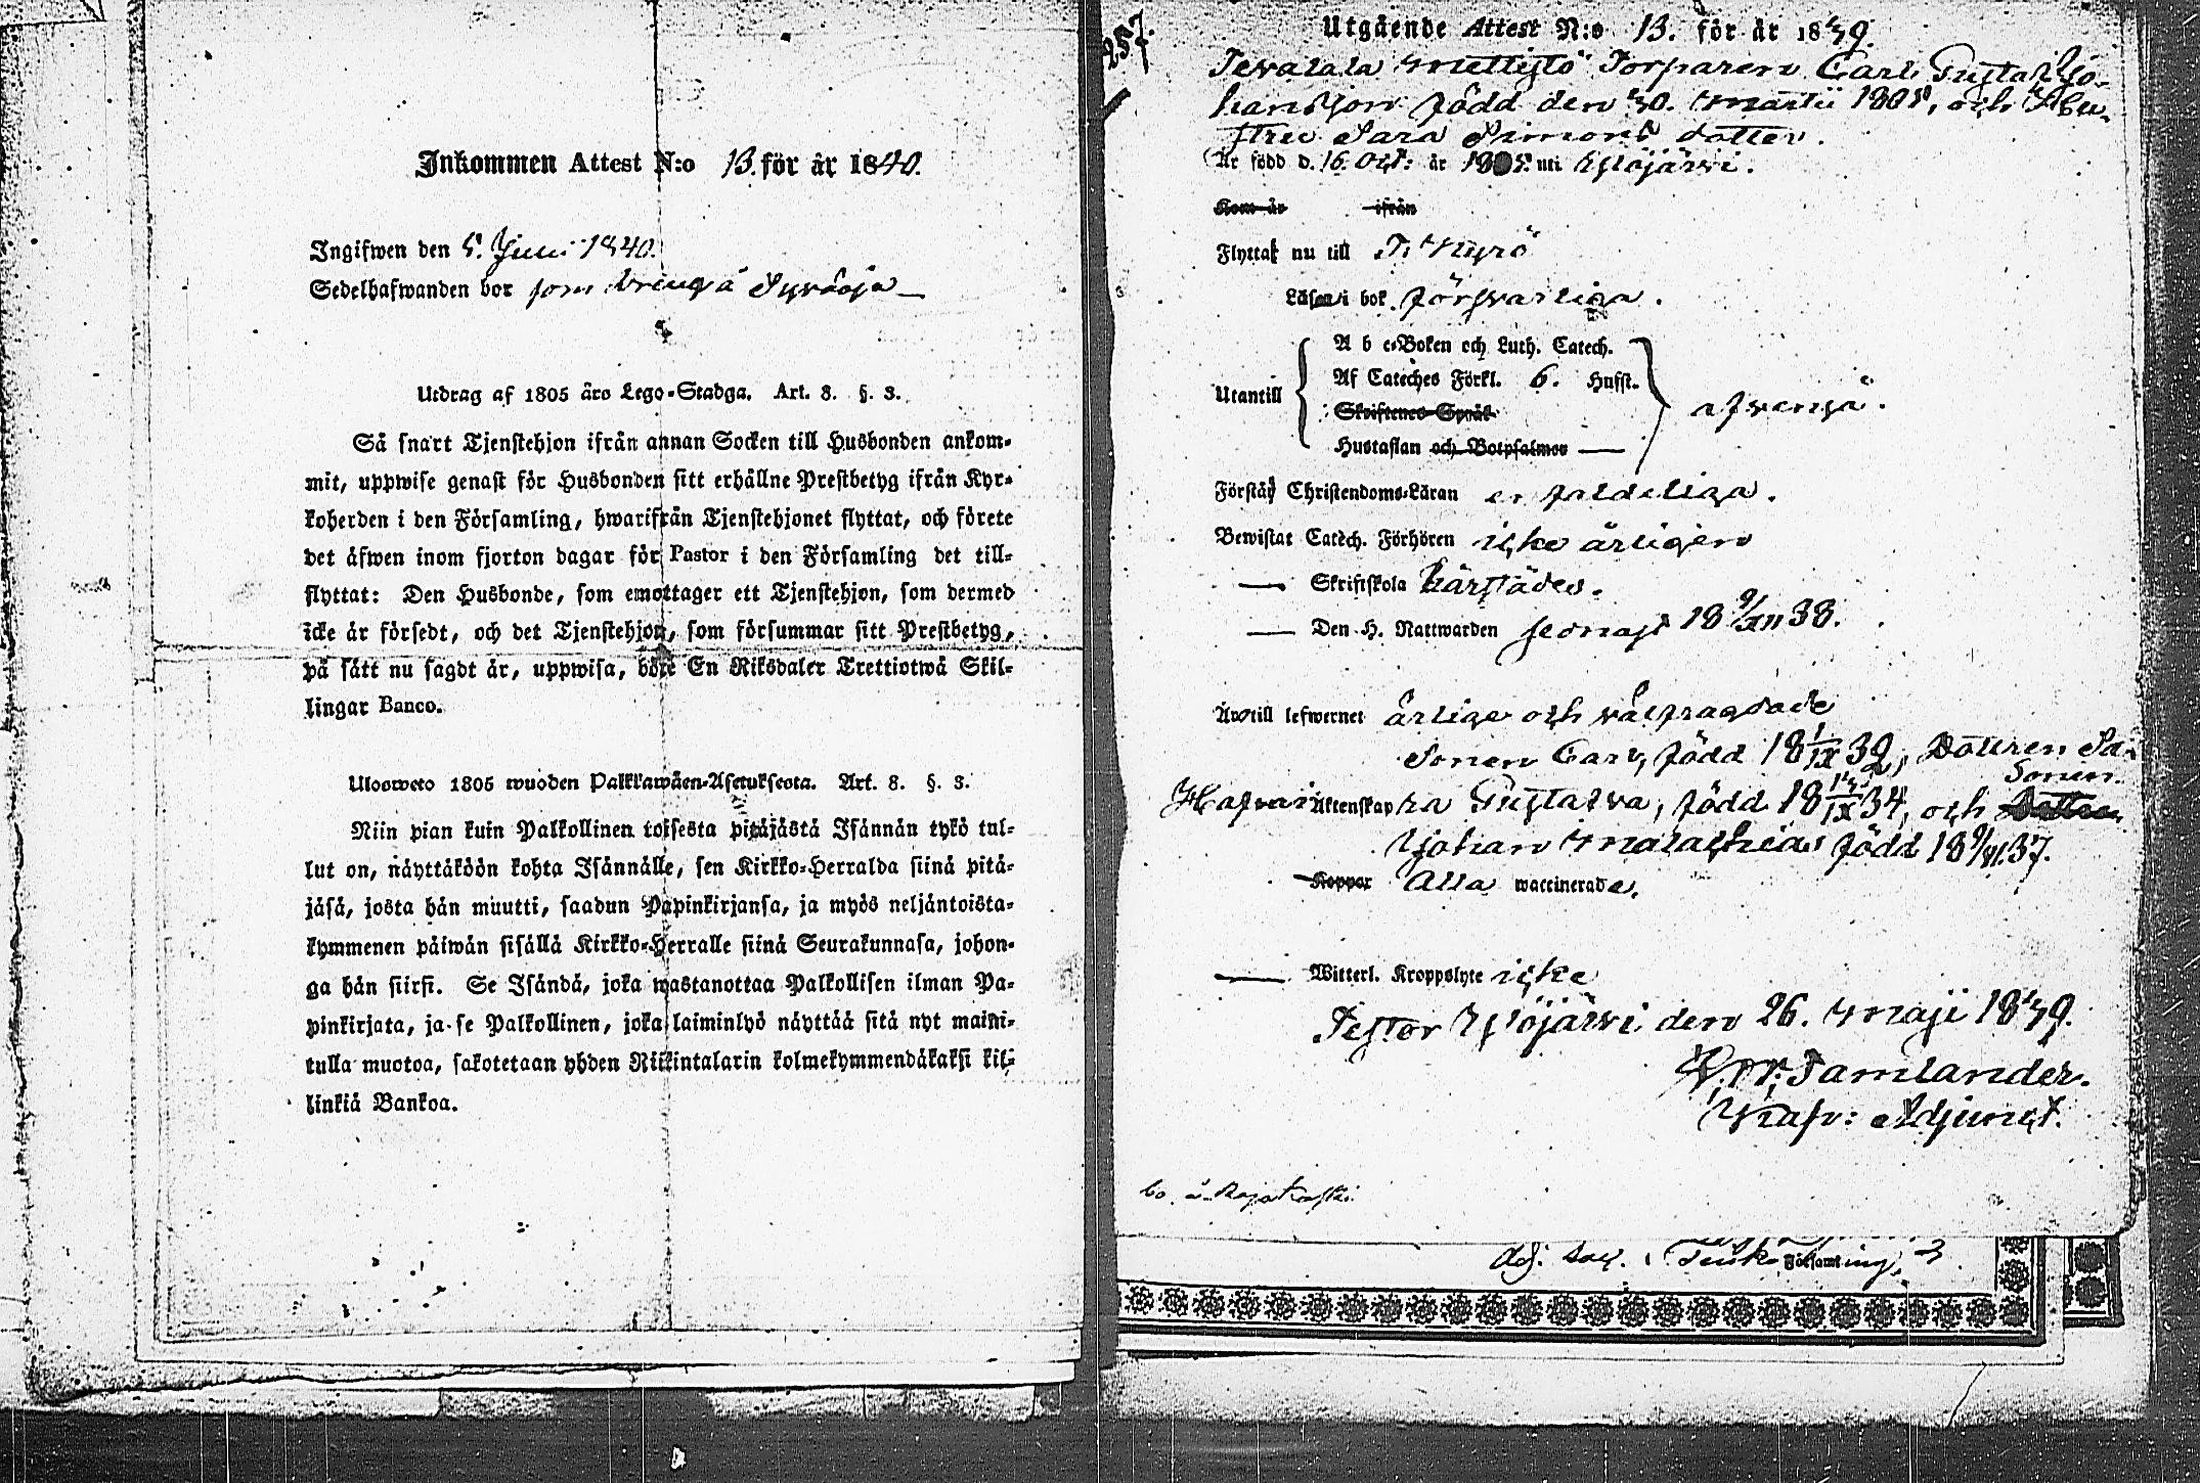 Inkommen Attest N:o 13. för år 1840.
Ingifwen den 5. Juni 1840.
Sedelhafwanden bor som
Utdrag af 1805 års Lego-Stadga. Art. 8. §. 3.
Så snart Tjenstehjon ifrån annan Socken till Husbonden ankom-
mit, uppwise genast för Husbonden sitt erhållne Prestbetyg ifrån Kyr-
koherden i den Församling, hwarifrån Tjenstehjonet flyttat, och förete
det äfwen inom fjorton dagar för Pastor i den Församling det till-
flyttat: Den Husbonde, som emottager ett Tjenstehjon, som dermed
icke är försedt, och det Tjenstehjon, som försummar sitt Prestbetyg,
på sätt nu sagdt är, uppwisa, böte En Riksdaler Trettiotwå Skil-
lingar Banco.
Ulosweto 1805 wuoden Palkkawäen-Asetuksesta. Art. 8. §. 3.
Niin pian kuin Palkollinen toisesta pitäjästä Isännän tykö tul-
lut on, näyttäköön kohta Isännälle, sen Kirkko-Herralda siinä pitä-
jäsä, josta hän muutti, saadun Papinkirjansa, ja myös neljäntoista-
kymmenen päiwän sisällä Kirkko-Herralle siinä Seurakunnasa, johon-
ga hän siirsi. Se Isändä, joka wastanottaa Palkollisen ilman Pa-
pinkirjata, ja se Palkollinen, joka laiminlyö näyttää sitä nyt maini-
tulla muotoa, sakotetaan yhden Riikintalarin kolmekymmendäkaksi kil-
linkiä Bankoa.
257.
Utgående Attest N:o 13. för år 1839.
Tevalala Mettistö Torparen Carl Gustaf Jo-
hansson född den 30. Martii 1805, och Hu-
stru Sara Simons dotter.
Är född d. 16. Oct: år 1805. uti Ylöjärvi.
Kom år ifrån
Flyttat nu till T. Kyrö
Läsa i bok försvarliga.
A b c-Boken och Luth. Catech.
Af Cateches Förkl. 6. Hufst.
Utantill
Skriftenes Språk
afvenså.
Hustaflan och Botpsalmer
Förstå Christendoms-Läran enfaldeliga.
Bewistat Catech. Förhören icke årligen
Skriftskola härstädes.
Den H. Nattwarden senast 18 9/XII 38.
Är till lefwernet ärlige och välfrägdade
Sonen Carl, född 18 1/IX 32, Dottren Sa-
Sonen
Äktenskap ra Gustafva, född 18 13/IX 34, och Dottren
Johan Malachias född 18 9/VI. 37.
Koppor Alla waccinerade.
Witterl. Kroppslyte icke
Testor Ylöjärvi den 26. Maji 1839.
Gr. Tamlander.
Adjunct.
bo. å Rajakoski
Församling,